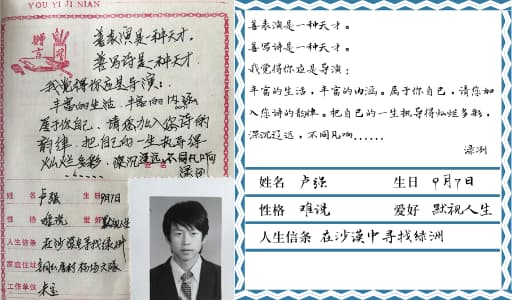 YOU YI JI NIAN
赠言
善表演是一种天才.
善写诗是一种天才.
我觉得你应是导演:
丰富的生活,丰富的内涵
属于你自己,请您加入您诗的
韵律.把自己的一生执导得
灿烂多彩,深沉辽远,不同凡响
姓名 卢强 生日 9月7日
性格 难说 爱好 默视人生
人生信条 在沙漠中寻找绿洲
家庭住址
工作单位
善表演是一种天才。
善写诗是一种天才。
我觉得你应是导演:
丰富的生活,丰富的内涵。属于你自己,请您加
入您诗的韵律。把自己的一生执导得灿烂多彩,
深沉辽远,不同凡响......
姓名 卢强 生日 9月7日
性格 难说 爱好 默视人生
人生信条 在沙漠中寻找绿洲